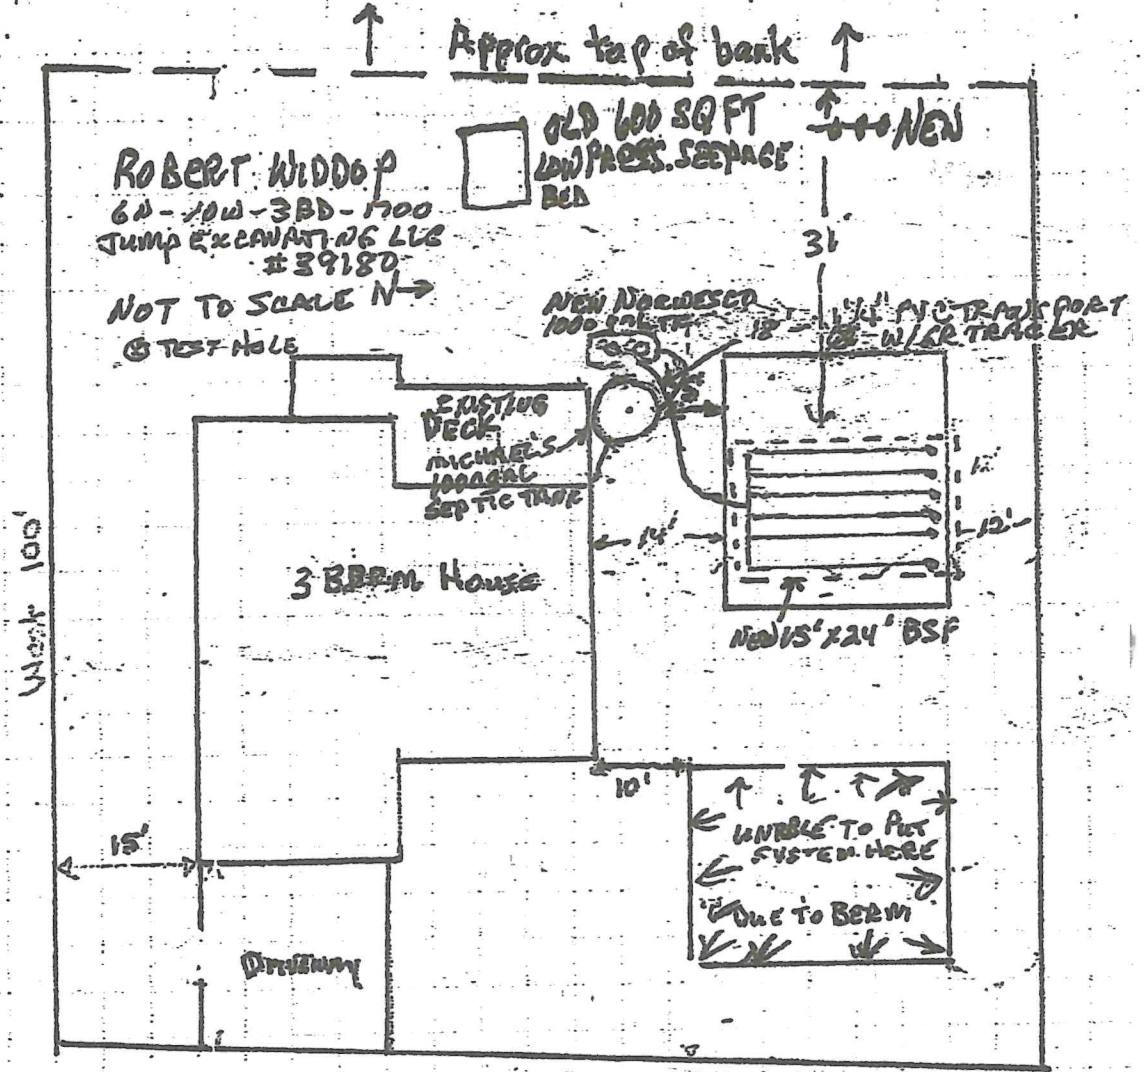 Approx top of bank
OLD 600 SQ FT
LOW PRESS. SEEPAGE
BED
NEW
ROBERT WIDDOP
6N-10W-3BD-1700
JUMP EXCAVATING LLC
#39180
NOT TO SCALE N→
TEST HOLE
31
NEW NORWESCO
1000
18'
1 1/4" PVC TRANSPORT
W/ TRACER
EXISTING
DECK
MICHAEL'S
1000 GAL
SEPTIC TANK
14'
12'
12'
3 BDRM HOUSE
NEW 15' X 24' BSF
West 100'
10'
15'
UNABLE TO PUT
SYSTEM HERE
DUE TO BERM
DRIVEWAY